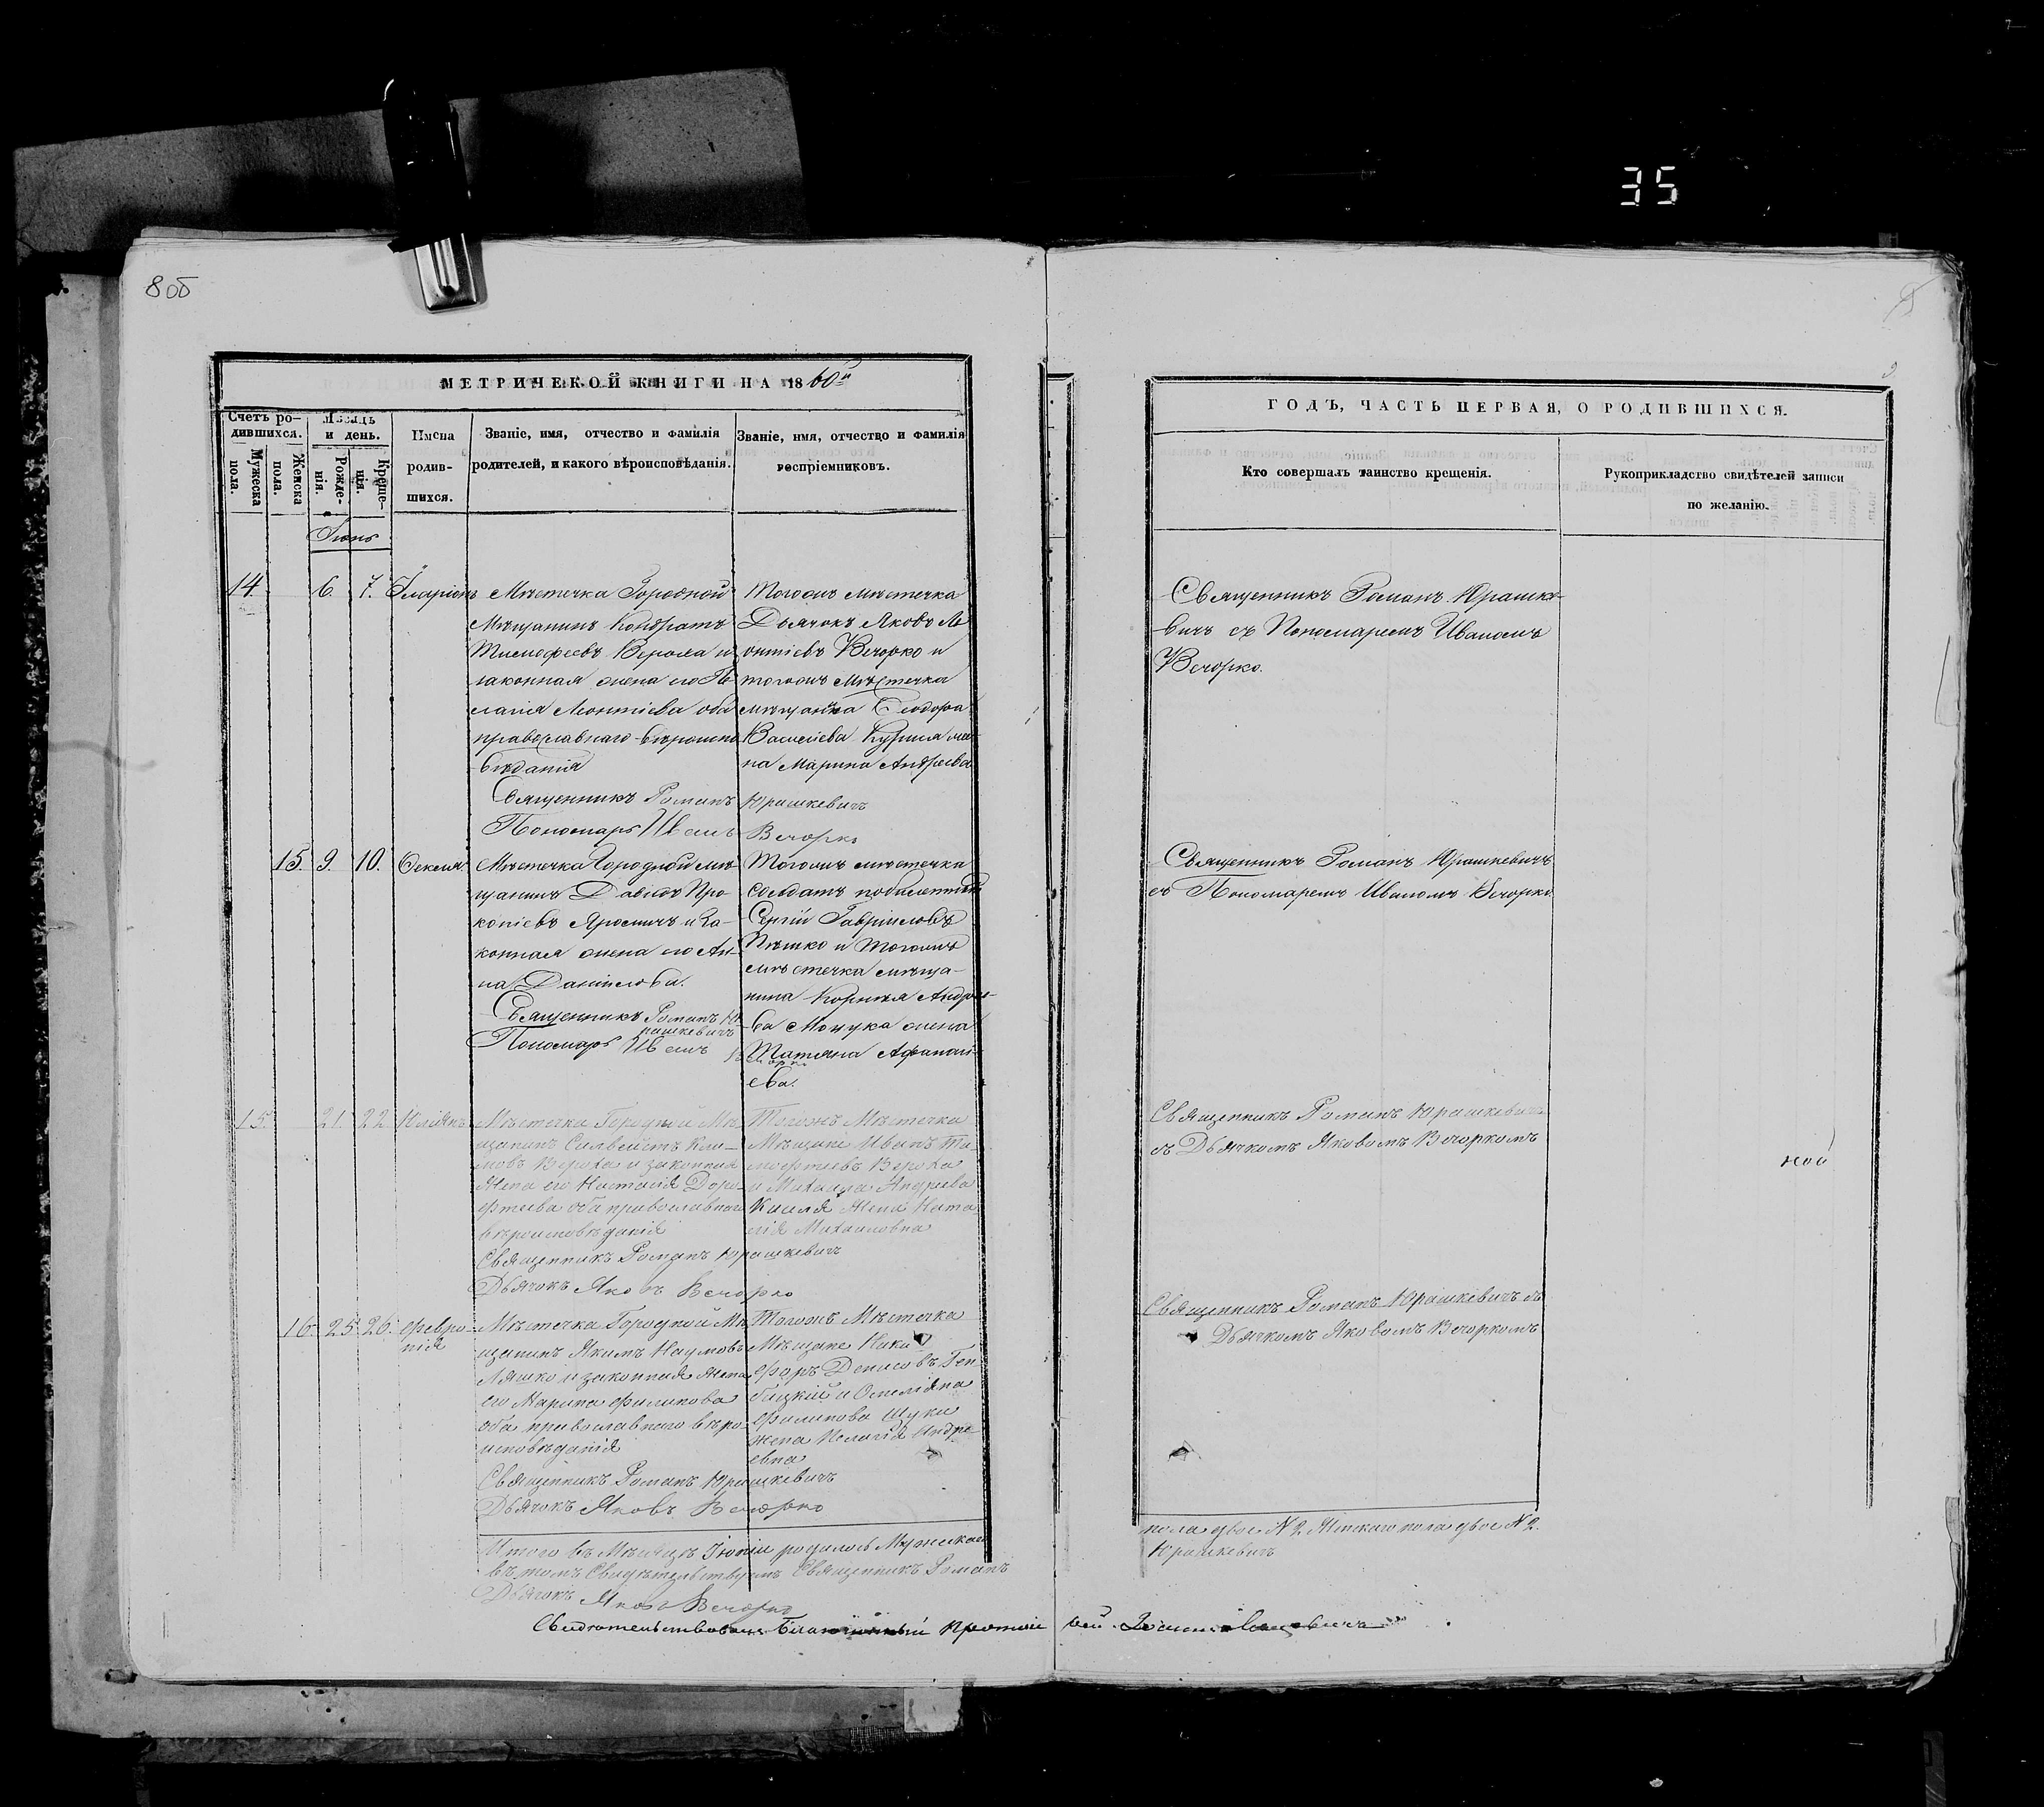 35
8 об
МЕТРИЧЕКОЙ КНИГИ НА 1860й
Счетъ ро-
дившихся.
Мужеска пола.
Женска пола.
Мѣсяцъ
и день.
Рожде-
нія.
Креще-
нія.
Имена
родив-
шихся.
Званіе, имя, отчество и фамилія
родителей, и какого вѣроисповѣданія.
Званіе, имя, отчество и фамилія
воспріемниковъ.
Іюнь
14 6. 7. Іларіонъ
Мѣстечка Городной
Мѣщанинъ Кондратъ
Тимофеевъ Верола и
законная жена его Пе-
лагія Леонтіева оба
православнаго вѣроиспо
вѣданія
Священникъ Романъ Юрашкевичъ
Пономарь Иванъ Вечорко
Тогожъ мѣстечка
Дьячокъ Яковъ Ле
онтіевъ Вечорко и
тогожъ мѣстечка
мѣщанина Ѳеодора
Василіева Курила же-
на Марина Андреева
15. 9. 10. Ѳекла
Мѣстечка Городной мѣ-
щанинъ Давидъ Про-
копіевъ Яромичъ и За-
конная жена его Ан-
на Даніилова.
Священникъ Романъ Ю
рашкевичъ
Пономарь Иванъ Вечорко
Тогожъ мѣстечка
солдатъ побилетный
Сергій Гавріиловъ
Пѣшко и Тогожъ
мѣстечка мѣща-
нина Корнѣя Андрее-
ва Мощука жена
Татіяна Афанасі-
ева.
15 21. 22 Юліянъ
Мѣстечка Городной Мѣ
щанинъ Силвестъ Кли-
мовъ Вероха и законная
Жена его Настасія Доро-
фтеева оба православнаго
вѣроисповѣданія
Священникъ Романъ Юрашкевичъ
Дьячокъ Яковъ Вечорко
Тогожъ Мѣстечка
Мѣщане Иванъ Ти-
мофтеевъ Вероха
и Михаила Андреева
Киселя Жена Ната-
лія Михаиловна
16. 25. 26. Февро-
нія
Мѣстечка Городной Мѣ
щанинъ Якимъ Наумовъ
Ляшко и законная Жена
его Марина Филипова
оба православнаго вѣро
исповѣданія
Священникъ Романъ Юрашкевичъ
Дьячокъ Яковъ Вечорко
Тогожъ Мѣстечка
Мѣщане Ники
форъ Денисовъ Ген
бицкій и Омеліяна
Филипова Шуки
жена Пелагія Андре
евна
Итого въ Мѣсяцѣ Іюніи родилось Мужскаго
въ томъ Свидѣтельствуемъ Священникъ Романъ
Дьячокъ Яковъ Вечорко
Свидѣтельствовалъ Благочинный Протоіе рей
ГОДЪ, ЧАСТЬ ПЕРВАЯ, О РОДИВШИХСЯ.
Кто совершалъ таинство крещенія.
Рукоприкладство свидѣтелей записи
по желанію.
Священникъ Романъ Юрашке-
вичъ съ Пономаремъ Иваномъ
Вечорко.
Священникъ Романъ Юрашкевичъ
съ Пономаремъ Иваномъ Вечорко
Священникъ Романъ Юрашкевичъ
съ Дьячкомъ Яковомъ Вечоркомъ
Священникъ Романъ Юрашкевичъ съ
Дьячкомъ Яковомъ Вечоркомъ
пола двое №2 Женскаго пола двое №2.
Юрашкевичъ